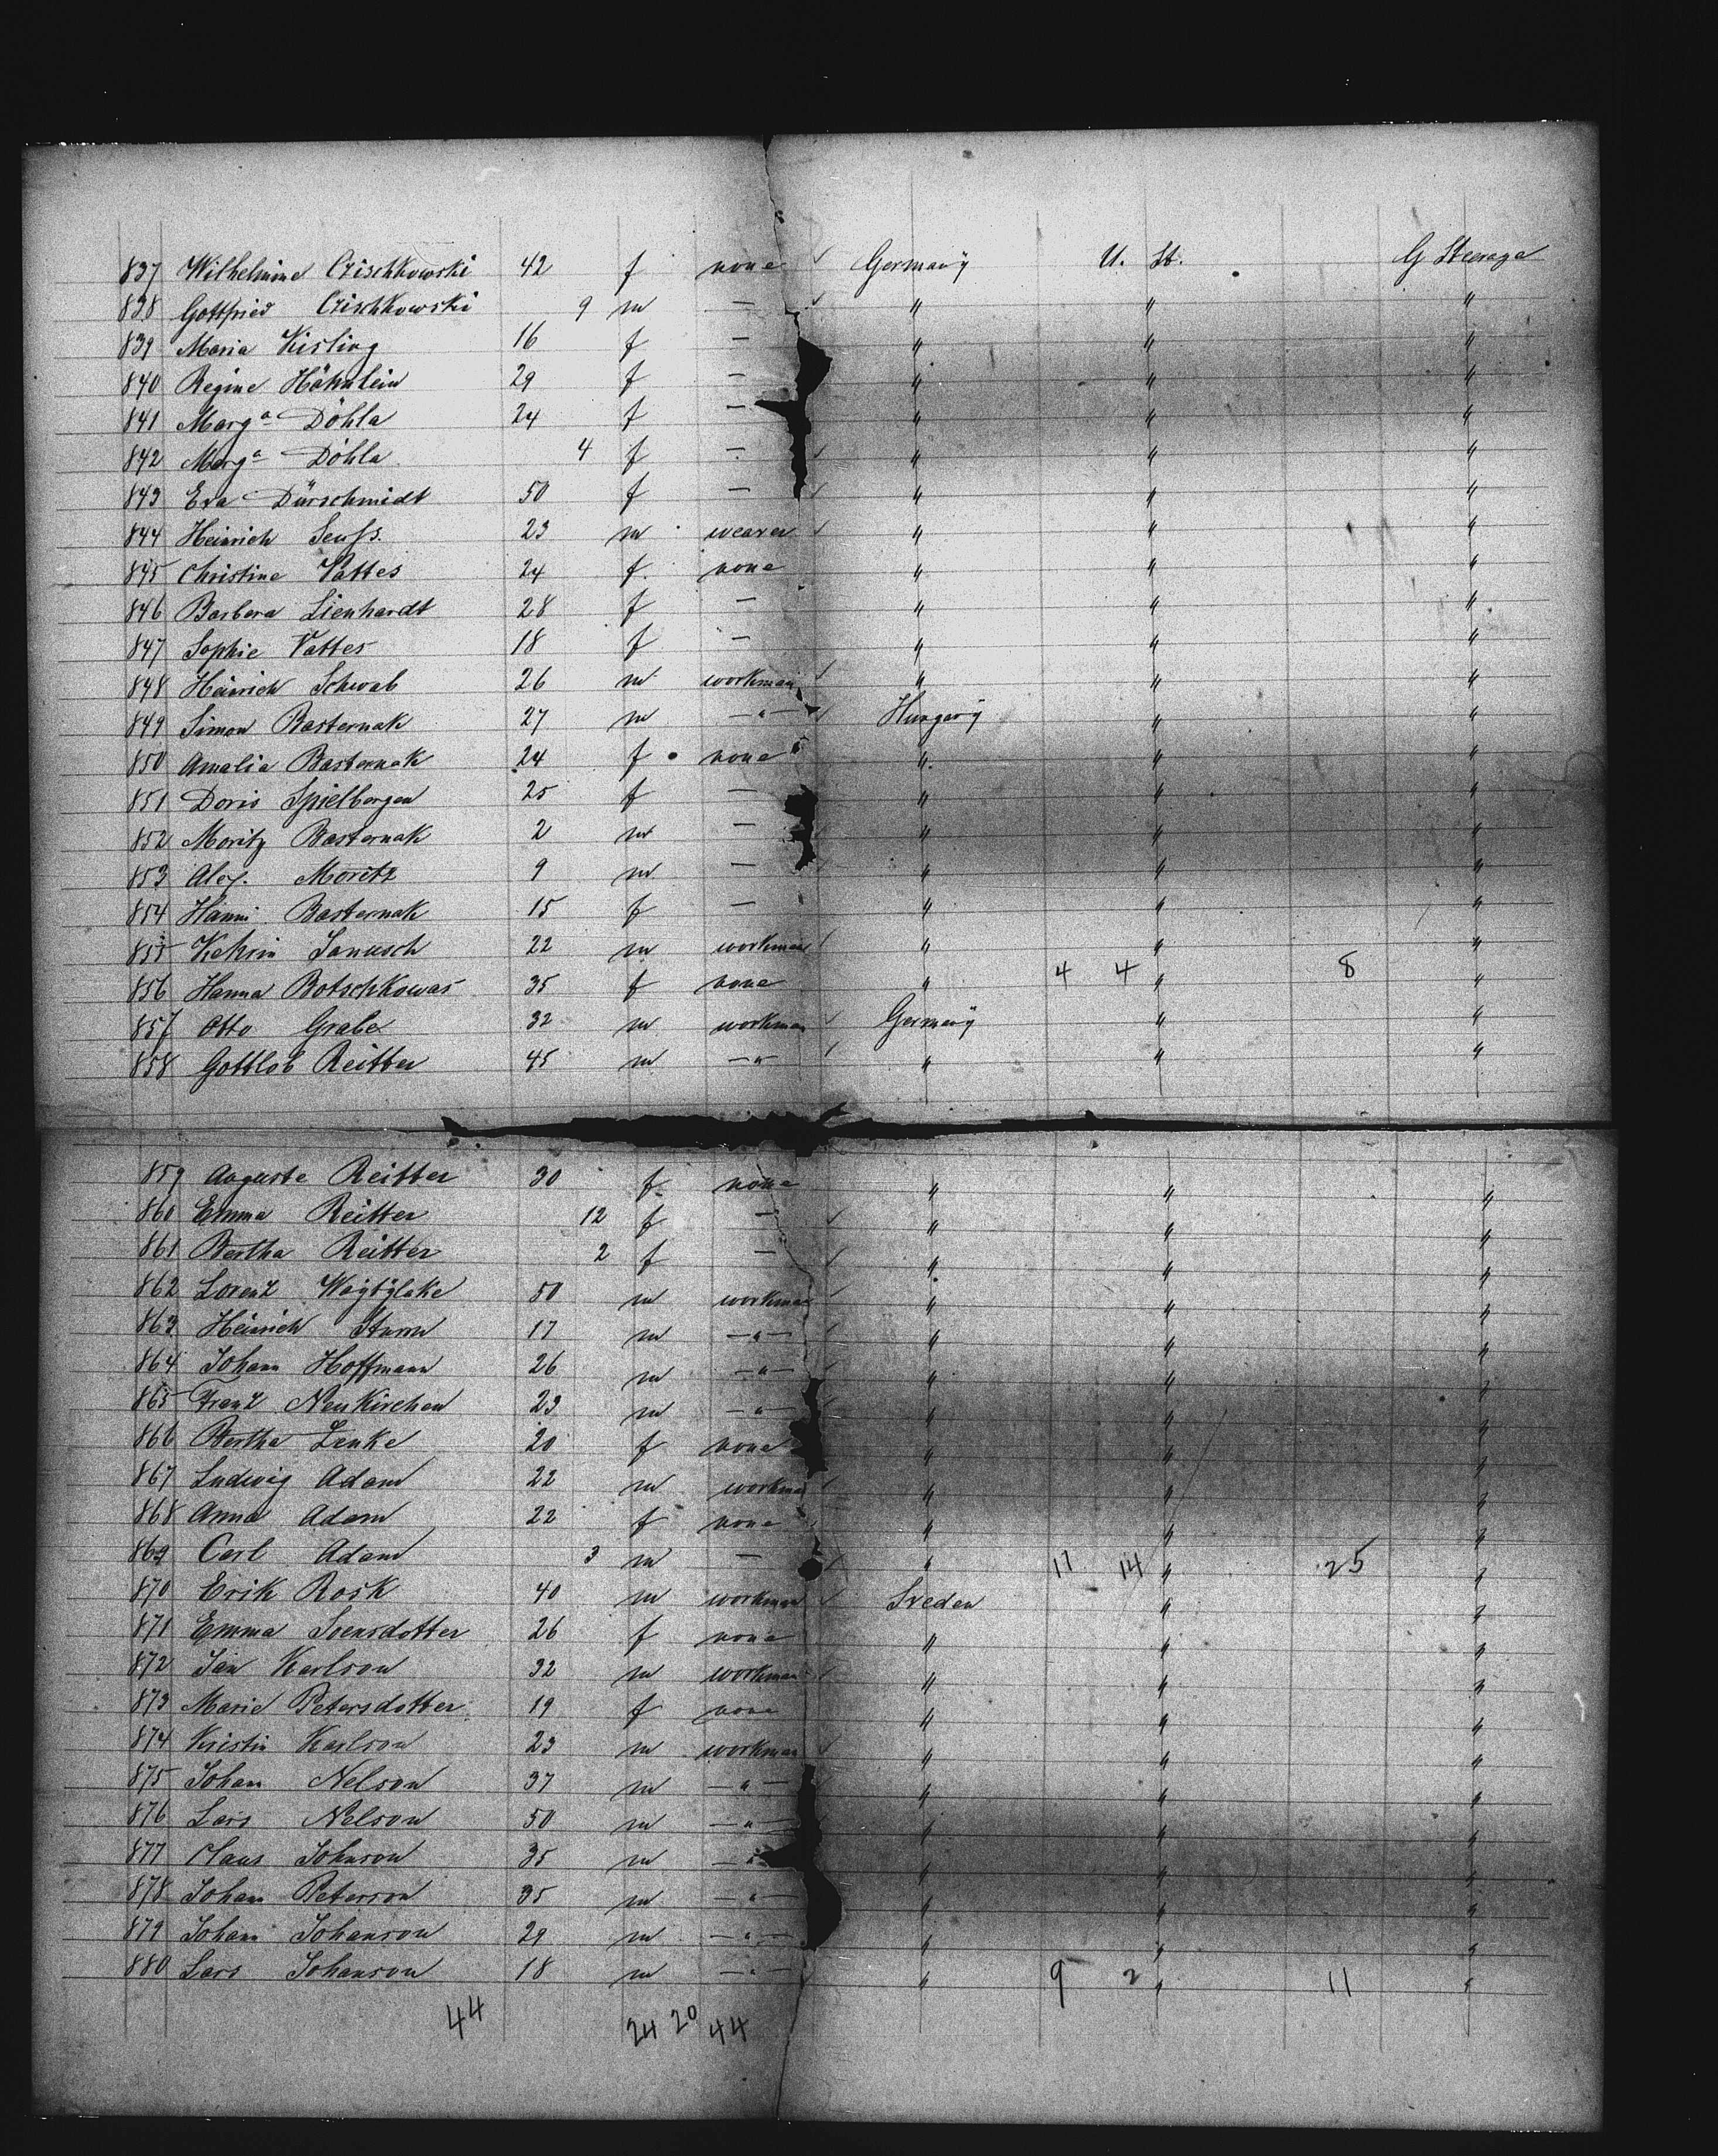 837 Wilhelmine Czischkowski 42 f none ✓ Germany U. St. G Steerage
838 Gottfried Czischkowski 9 m — ✓ " " "
839 Maria Kisling 16 f — " " "
840 Regine Höhnlein 29 f — " " "
841 Marga Döhla 24 f — " " "
842 Marga Döhla 4 f — ✓ " " "
843 Eva Dürschmidt 50 f — ✓ " " "
844 Heinrich Seufs. 23 m weaver ✓ " " "
845 Christine Vattes 24 f. none " " "
846 Barbera Lienhardt 28 f — " " "
847 Sophie Vattes 18 f — " " "
848 Heinrich Schwab 26 m workman ✓ " " "
849 Simon Basternak 27 m —"— ✓ Hungary " "
850 Amalia Basternak 24 f none " " "
851 Doris Spielbergen 25 f — " " "
852 Moritz Basternak 2 m — " " "
853 Alex. Moritz 9 m — " " "
854 Hanni Basternak 15 f — " " "
855 Janusch 22 m workman ✓ " " "
856 Hanna Botschkowas 35 f none " 4 4 " 8 "
857 Otto Grabe 32 m workman ✓ Germany " "
858 Gottlob Reitter 45 m —"— ✓ " " "
859 Auguste Reitter 30 f none " " "
860 Emma Reitter 12 f — ✓ " " "
861 Bertha Reitter 2 f — ✓ " " "
862 Lorenz 50 m workman ✓ " " "
863 Heinrich Sturm 17 m —"— ✓ " " "
864 Johann Hoffmann 26 m —"— ✓ " " "
865 Franz Neukirchen 23 m —"— " " "
866 Bertha Lenke 20 f none " " "
867 Ludwig Adam 22 m workman ✓ " " "
868 Anna Adam 22 f none " " "
869 Carl Adam 3 m — ✓ " 11 14 " 25 "
870 Erik Rosk 40 m workman ✓ Sveden " "
871 Emma Svensdotter 26 f none " " "
872 Jan Karlson 32 m workman ✓ " " "
873 Marie Petersdotter 19 f none " " "
874 Kristin Karlson 23 m workman ✓ " " "
875 Johan Nelson 37 m —"— " " "
876 Lars Nelson 50 m —"— " " "
877 Claus Johnson 35 m —"— " " "
878 Johan Peterson 35 m —"— " " "
879 Johan Johanson 29 m —"— " " "
880 Lars Johanson 18 m —"— ✓ " 9 2 " 11 "
44 24 20 44